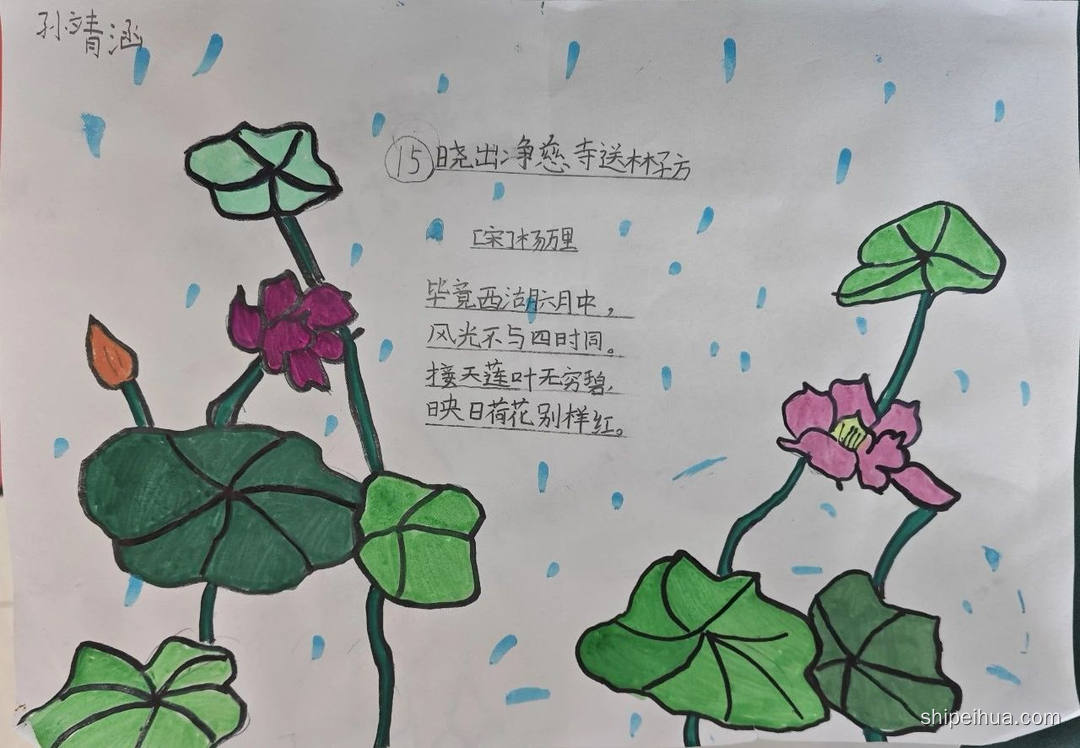 孙靖涵
15 晓出净慈寺送林子方
[宋]杨万里
毕竟西湖六月中，
风光不与四时同。
接天莲叶无穷碧，
映日荷花别样红。
shipeihua.com